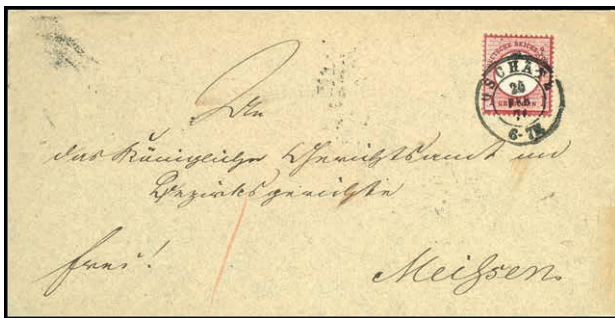 DEUTSCHE REICHS-
OSCHATZ
25
6-7N
An
das Königliche Gerichtsamt im
Bezirksgerichte
frei!
Meißen.